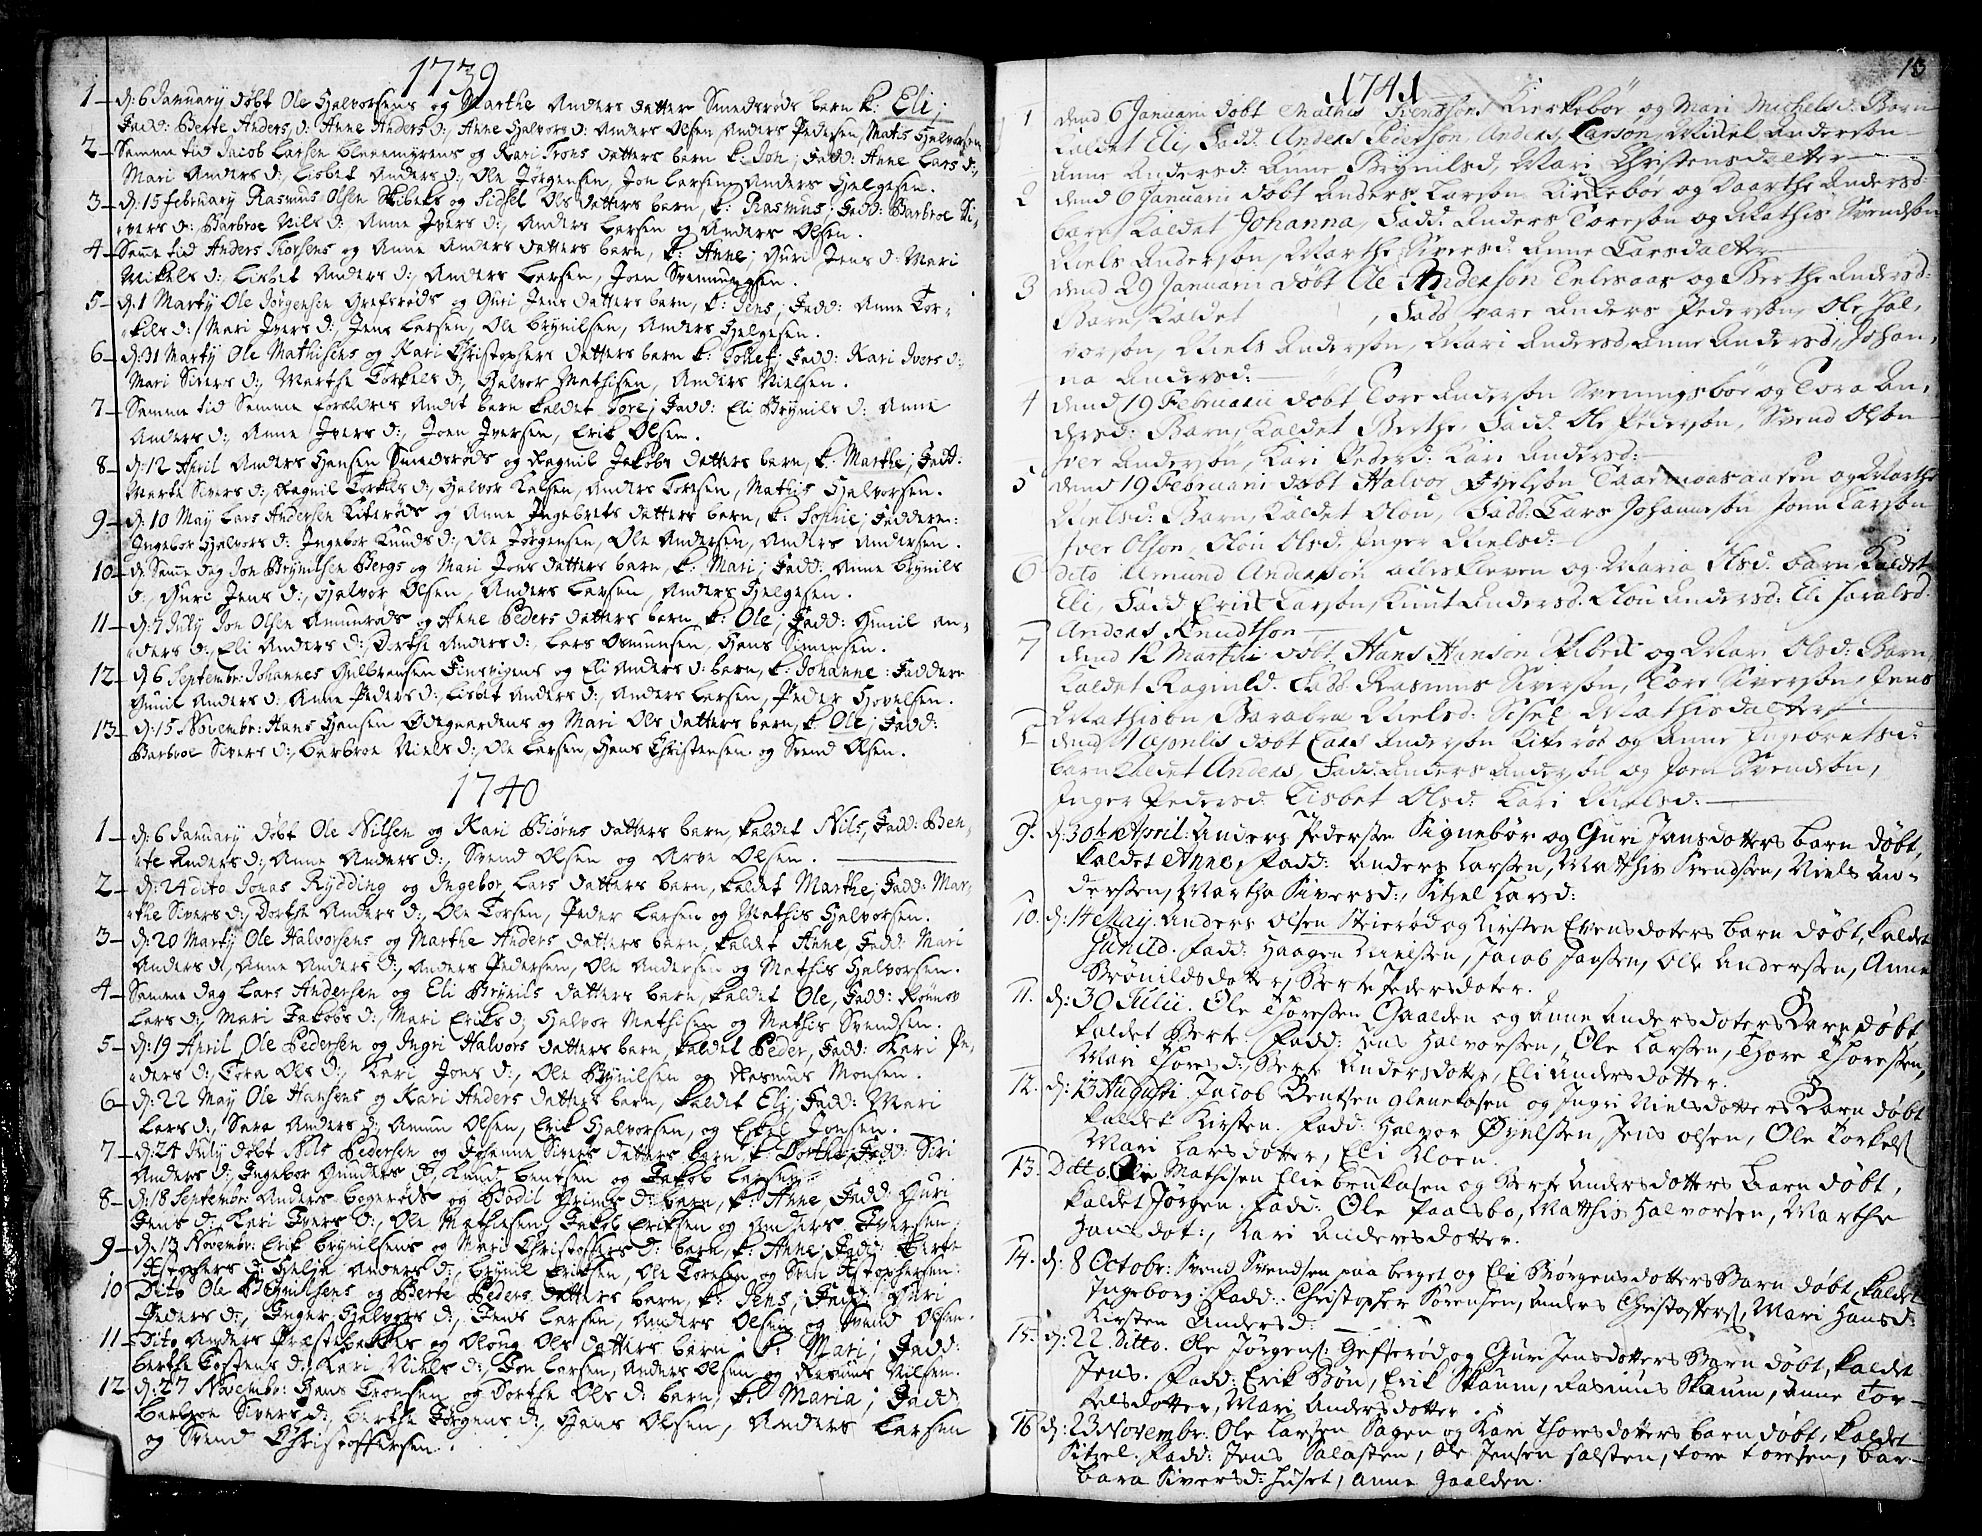 1739
1 d: 6 January døbt Ole Halvorsens og Marthe Anders datter Smedsrøds barn k: Eli;
Fadd: Berte Anders d: Anne Anders d:, Anne Halvors d: Anders Olsen, Anders Pedersen, Matis Halvorsen
2 Samme tid Jacob Larsen og Kari Trons datters barn k: Jon; Fadd: Anne Lars d:,
Mari Anders d:, Lisbet Anders d:, Ole Jørgensen, Jon Larsen, Anders Helgesen.
3 d: 15 February Rasmus Olsen Skibeks og Sidsel Ols datters barn, k: Rasmus; Fadd: Barbroe Si-
vers d: Barbroe Nils d: Anne Ivers d:, Anders Larsen og Anders Olsen.
4 Samme tid Anders Thorsens og Anne Anders datters barn, k: Anne; Guri Jens d: Mari
Mikels d: Lisbet Anders d:, Anders Larsen, Joen Svennungsen.
5 d: 1 Marty Ole Jørgensen Grefsrøds og Guri Jens datters barn, k: Jens; Fadd: Anne Tor-
kils d:, Mari Ivers d:, Jens Larsen, Ole Brynilsen, Anders Helgesen.
6 d: 31 Marty Ole Mathisens og Kari Christophers datters barn k: Tollef; Fadd: Kari Ivers d:,
Mari Sivers d:, Marthe Torkels d:, Halvor Mathisen, Anders Nielsen.
7 Samme tid Samme Forældres Andet barn kaldet Tore; Fadd: Eli Brynils d: Anne
Anders d:, Anne Ivers d:, Joen Iversen, Erik Olsen.
8 d: 12 April Anders Hansen Smedsrøds og Ragnil Jakobs datters barn, k: Marthe; Fadd:
Marte Sivers d:, Ragnil Torkels d:, Halvor Kelsen, Anders Toresen, Mathis Halvorsen.
9 d: 10 May Lars Andersen Kiterøds og Anne Ingebrets datters barn, k: Sophie; Faddere:
Ingebor Halvors d: Ingebor Knuds d:, Ole Jørgensen, Ole Andersen, Anders Andersen.
10 de Same dag Jon Brynilsen Bergs og Mari Jons datters barn, k: Mari; Fadd: Anne Brynils
d:, Guri Jens d:, Halvor Olsen, Anders Larsen, Anders Helgesen.
11 d: 7 July Jon Olsen Amunrøds og Anne Peders datters barn k: Ole; Fadd: Gunil An-
ders d:, Eli Anders d:, Dorthe Anders d:, Lars Osmunsen, Hans Simensen.
12 d: 6 Septembr: Johannes Gulbransen Finsvigens og Eli Anders d: barn, k: Johanne: Faddere
Gunil Anders d: Anne Peders d:, Lisbet Anders d:, Anders Larsen, Peder Hovelsen.
13 d: 15 Novembr: Hans Hansen Ødegaardens og Mari Ols datters barn, k: Ole; Fadd:
Barbroe Sivers d:, Barbroe Niels d:, Ole Larsen, Hans Christensen og Svend Olsen.
1740
1 d: 6 January døbt Ole Nilsen og Kari Biørns datters barn, kaldet Nils, Fadd: Ben-
te Anders d:, Anne Anders d:, Svend Olsen og Arve Olsen.
2 d: 24 dito Jonas Rydding og Ingebor Lars datters barn, kaldet Marthe; Fadd: Mar-
the Sivers d:, Dorthe Anders d:, Ole Torsen, Peder Larsen og Mathis Halvorsen.
3 d: 20 Marty Ole Halvorsens og Marthe Anders datters barn, kaldet Anne, Fadd: Mari
Anders d:, Anne Anders d:, Anders Pedersen, Ole Andersen og Mathis Halvorsen.
4 Samme dag Lars Andersen og Eli Brynils datters barn, kaldet Ole, Fadd: Rønnov
Lars d:, Mari Jakobs d:, Mari Eriks d: Halvor Mathisen og Mathis Svendsen.
5 d: 19 April Ole Pedersen og Ingri Halvors datters barn, kaldet Peder, Fadd: Kari Pe-
ders d:, Tora Ols d:, Kari Jons d:, Ole Brynilsen og Rasmus Monsen.
6 d: 22 May Ole Hansens og Kari Anders datters barn, kaldet Eli; Fadd: Mari
Lars d:, Sara Anders d: Amun Olsen, Erik Halvorsen, og Eskel Jonsen.
7 d: 24 July døbt Nils Pedersen og Johanne Sivers datters barn, k: Dorthe; Fadd: Siri
Anders d:, Ingebor Gunders d:, Knud bentsen og Jakob Larsen.
8 d: 18 Septembr: Anders bøgerøds og Bodil d: barn, k: Anne, Fadd: Guri
Jens d:, Kari Ivers d:, Ole Mathiesen, Jakob Eriksen og Anders Iversen;
9 d: 13 Novembr: Erik Brynilsens og Mari Christoffers d: barn, k: Anne; Fadd: Berte
Anders d:, Brynil Eriksen, Ole Toresen og
10 Dito Ole Brynilsens og Berte Peders datters barn, k: Jens; Fadd: Guri
Peders d:, Inger Halvors d:, Jens Larsen, Anders Olsen og Svend Olsen.
11 Dito Anders Præstbakkes og Oloug Ols datters barn, k: Mari; Fadd:
berthe Tostens d:, Kari Niels d:, Jon Larsen, Anders Olsen og Rasmus Nilsen.
12 d: 27 Novembr: Hans Tronsen og Dorthe Ols d: barn, k: Maria; Fadd:
barbroe Sivers d:, berthe Jørgens d:, Hans Olsen, Anders Larsen
og Svend Christoffersen.
13
1741
1 dend 6 Januarii døbt Mathis Svendsøns Kierkebøe og Mari Michelsd: Barn
Kaldet Eli, Fadd: Anders Pedersøn, Anders Larsøn, Michel Andersøn
Anne Andersd: Anne Brynilsd, Mari Christensdatter
2 dend 6 Januarii døbt Anders Larsøn Kirkebøe og Maarthe Andersd:
barn Kaldet Johanna, Fadd: Anders Toresøn og Mathis Svendsøn
Niels Andersøn, Marthe Siversd: Anne Larsdatter
3 dend 29 Januarii døbt Ole Andersøn og Berthe Andersd:
Barn, Kaldet , Fadd vare Anders Pedersøn, Ole Hal-
vorsøn, Niels Andersøn, Mari Andersd, Anne Andersd, Johan-
na Andersd:
4 dend 19 Februarii døbt Tore Andersøn Svenningsbøe og Tora An-
dersd: Barn, Kaldet Berthe, Fadd: Ole Pedersøn, Svend Olsøn
Iver Andersøn, Kari Pedersd: Kari Andersd:
5 dend 19 Februarii døbt Halvor og Marthe
Nielsd: Barn, Kaldet Olou, Fadd: Lars Johannsøn Joen Larsøn
Iver Olsøn, Olou Olsd. Inger Nielsd:
6 Dito Amund Andersøn og Maria Olsd. barn Kaldet
Eli, Fadd Erik Larsøn, Knut Andersd. Olou Andersd: Eli
Anders Knudtsøn
7 dend 12 Martii døbt Hans Hansøn Skibek og Mari Olsd: Barn,
Kaldet Ragnild. Fadd: Rasmus Siversøn, Tore Siversøn, Jens
Mathisøn Barabra Nielsd: Sisel Mathisdatter
8 dend 4 Aprilis døbt Lars Andersøn Kiterød og Anne Ingebretsd:
barn Kaldet Anders, Fadd: Anders Andersøn og Joen Svendsøn,
Inger Pedersd: Lisbet Olsd: Kari Nielsd:
9. d: 30te April: Anders Pedersen Signebøe og Guri Jansdotters barn døbt,
kaldet Anne, Fadd: Anders Larssen, Matthis Svendsen, Niels An-
derssen, Martha Siversd:, Sitzel Larsd:
10. d: 14 May. Anders Olsen Steierød og Kirsten Evensdoters barn døbt, kaldet
Gunild. Fadd: Haagen Nielssen, Jacob Janssen, Olle Anderssen, Anne
Brønildsdotter, Berte Pedersdoter.
11. d: 30 Julii. Ole Thoressen Gaalden og Anne Andersdoters Barn døbt,
kaldet Berte. Fadd: Jens Halvorssen, Ole Larssen, Thore Thoressen,
Mari Thoresd:, Berte Andersdotter, Eli Andersdotter.
12. d: 13 Augusti. Jacob Bentsen og Ingri Nielsdotters Barn døbt
kaldet Kirsten. Fadd: Halvor Øyelssen, Jens Olsen, Ole Torkels:
Mari Larsdotter, Eli Moen.
13. Ditto. Ole Mathisen og Berte Andersdotters Barn døbt,
kaldet Jørgen. Fadd: Ole Paalsbo, Matthis Halvorsen, Marthe
Hansdot:, Kari Andersdotter.
14. d: 8 Octobr: Svend Svendsen paa berget og Eli Børgensdotters Barn døbt, kaldet
Ingeborg: Fadd: Christopher Sørensen, Anders Christoffers:, Mari Hansd:
Kirsten Andersd:
15. d: 22 Ditto. Ole Jørgens: Gefferød og Guri Jensdotters Barn døbt, kaldet
Jens. Fadd: Erik Bøn, Erik Skaum, Rasmus Skaum, Anne Tor-
kelsdotter, Mari Andersdotter.
16 d: 23 Novembr: Ole Larsen Sagen og Kari Thoresdotters barn døbt, kaldet
Sitzel. Fadd: Jens Salasten, Ole Jensen salsten, tore toresen, Bar-
bara Siversd: huset, Anne Gaalden.